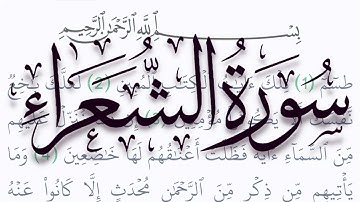 بِسْمِ ٱللَّهِ ٱلرَّحْمَٰنِ ٱلرَّحِيمِ
سُورَةُ الشُّعَرَاءِ
طسٓمٓ (1) تِلْكَ ءَايَٰتُ ٱلْكِتَٰبِ ٱلْمُبِينِ (2) لَعَلَّكَ بَٰخِعٌ
نَّفْسَكَ
مِّنَ ٱلسَّمَآءِ ءَايَةً فَظَلَّتْ أَعْنَٰقُهُمْ لَهَا خَٰضِعِينَ (4) وَمَا
يَأْتِيهِم مِّن ذِكْرٍ مِّنَ ٱلرَّحْمَٰنِ مُحْدَثٍ إِلَّا كَانُوا۟ عَنْهُ